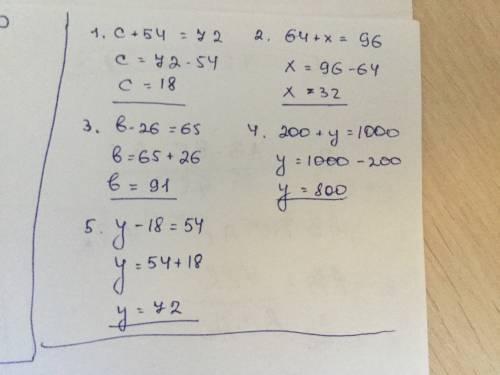 1. c + 54 = 72
c = 72 - 54
c = 18
2. 64 + x = 96
x = 96 - 64
x = 32
3. в - 26 = 65
в = 65 + 26
в = 91
4. 200 + y = 1000
y = 1000 - 200
y = 800
5. y - 18 = 54
y = 54 + 18
y = 72